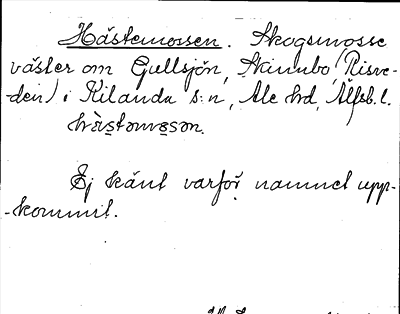 Hästemossen. Skogsmosse
väster om Gullsjön, Skinnbo (Risve-
den) i Kilanda s:n, Ale hd, Älfsb. l.
hàstomosən.
Ej känt varför namnet upp-
-kommit.